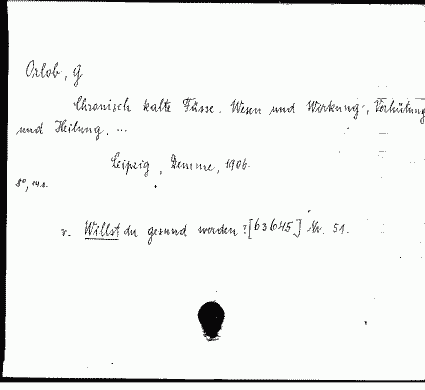 Orlob, G
Chronisch kalte Füsse. Wesen und Wirkung, Verhütung
und Heilung. ...
Leipzig, Demme, 1906.
8°,
v. Willst du gesund werden? [63645] Nr. 51.